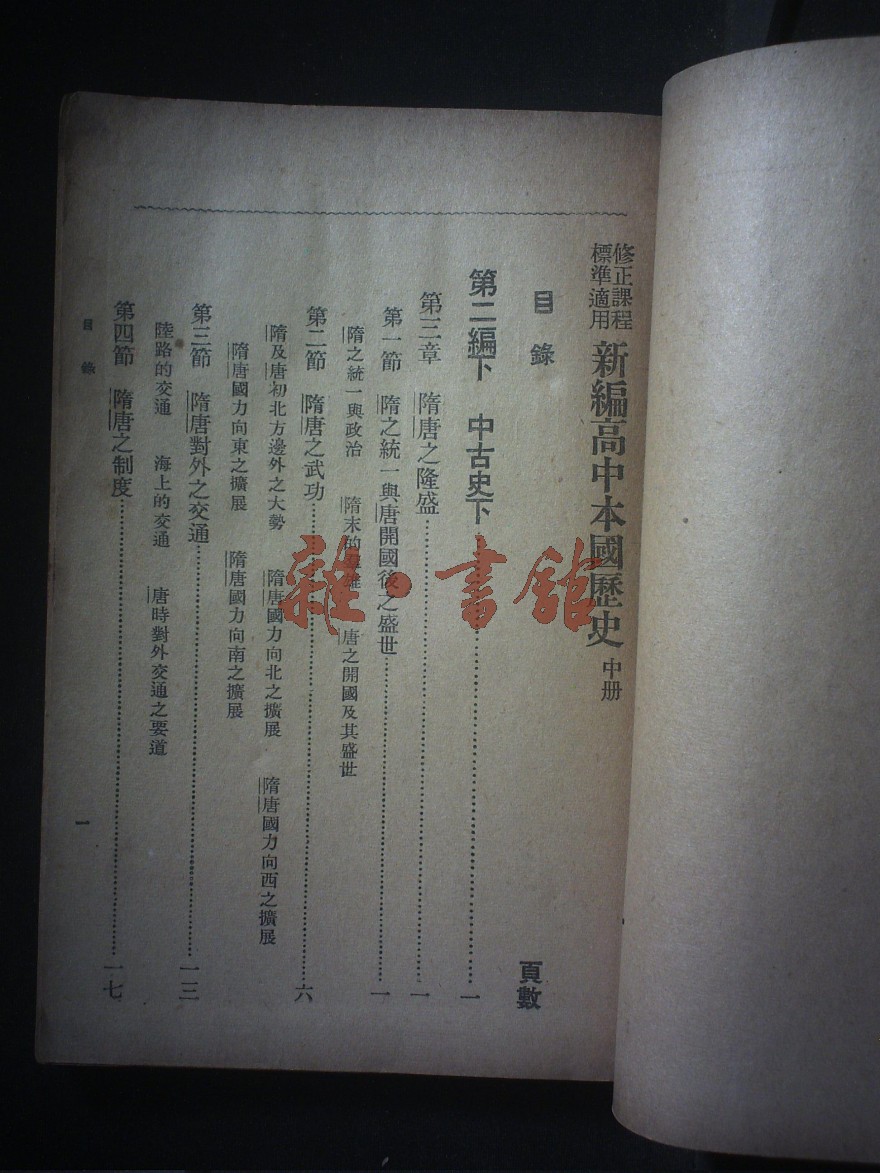 修正課程
標準適用
新編高中本國歷史 中册
目錄
頁數
第二編下 中古史下……一
第三章 隋唐之隆盛……一
第一節 隋之統一與唐開國後之盛世……一
隋之統一與政治 隋末的羣雄 唐之開國及其盛世
第二節 隋唐之武功……六
隋及唐初北方邊外之大勢 隋唐國力向北之擴展 隋唐國力向西之擴展
隋唐國力向東之擴展 隋唐國力向南之擴展
第三節 隋唐對外之交通……一三
陸路的交通 海上的交通 唐時對外交通之要道
第四節 隋唐之制度……一七
目錄
一
雜·書館